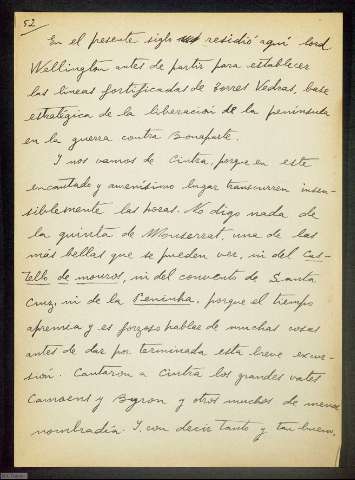 52
En el presente siglo residió aquí lord
Wellington antes de partir para establecer
las líneas fortificadas de Torres Vedras, base
estratégica de la liberación de la península
en la guerra contra Bonaparte.
Y nos vamos de Cintra, porque en este
encantado y amenísimo lugar transcurren insen-
siblemente las horas. No digo nada de
la quinta de Monserrat, una de las
más bellas que se pueden ver, ni del Cas-
tello de mouros, ni del convento de Santa
Cruz, ni de la Peninha, porque el tiempo
apremia y es forzoso hablar de muchas cosas
antes de dar por terminada esta breve excur-
sión. Cantaron a Cintra los grandes vates
Camoens y Byron y otros muchos de menos
nombradía. Y, con decir tanto y tan bueno,